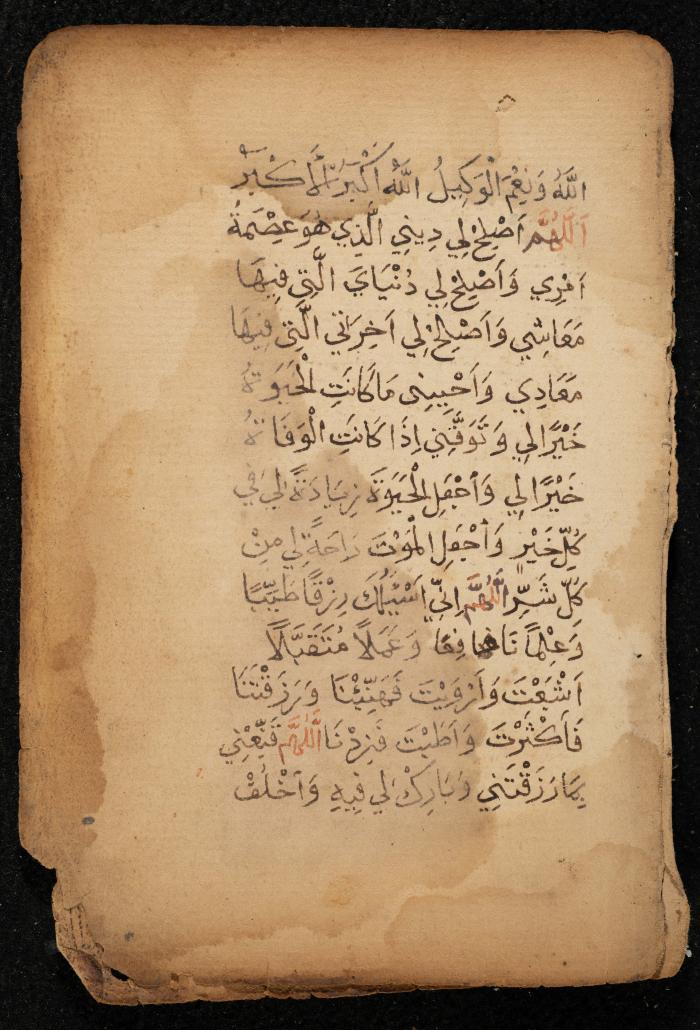 اللَّهُ وَنِعْمَ الْوَكِيلُ اللَّهُ اَكْبَرُ اَللَّهُ اَكْبَرْ
اَللَّهُمَّ اَصْلِحْ لِي دِينِي الَّذِي هُوَ عِصْمَةُ
اَمْرِي وَاَصْلِحْ لِي دُنْيَايَ الَّتِي فِيهَا
مَعَاشِي وَاَصْلِحْ لِي اَخِرَتِي الَّتِي فِيهَا
مَعَادِي وَاَحْيِينِي مَا كَانَتِ الْحَيَوةُ
خَيْرًا لِي وَتَوَفَّنِي اِذَا كَانَتِ الْوَفَاةُ
خَيْرًا لِي وَاجْعَلِ الْحَيَوةَ زِيَادَةً لِي فِي
كُلِّ خَيْرٍ وَاَجْعَلِ الْمَوْتَ رَاحَةً لِي مِنْ
كُلِّ شَرٍّ اللَّهُمَّ اِنِّي اَسْئَلُكَ رِزْقًا طَيِّبًا
وَعِلْمًا نَافِعًا وَعَمَلًا مُتَقَبَّلًا
اَشْبَعْتَ وَاَرْوَيْتَ فَهَنِّيْنَا وَرَزَقْتَنَا
فَاَكْثَرْتَ وَاَطَبْتَ فَزِدْنَا اَللَّهُمَّ قَنِّعْنِي
بِمَا رَزَقْتَنِي وَبَارِكْ لِي فِيهِ وَاَخْلُفْ